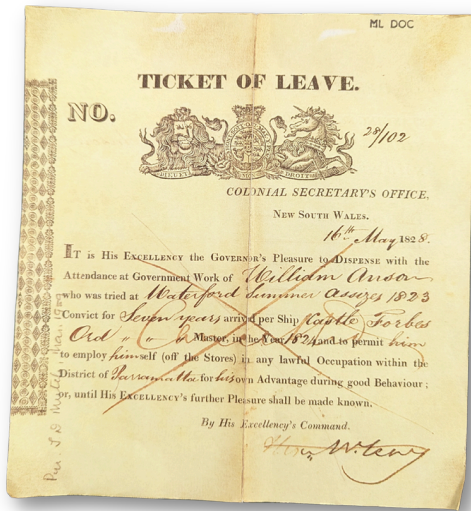 ML DOC
TICKET OF LEAVE.
NO.
28/102
DIEU ET
DROIT
COLONIAL SECRETARY'S OFFICE,
NEW SOUTH WALES.
16th May 1828.
IT is His EXCELLENCY the GOVERNOR'S Pleasure to DISPENSE with the
Attendance at Government Work of William Anson
who was tried at Waterford Summer Assizes 1823
Convict for Seven years arrived per Ship Castle Forbes
Ord " " Master, in the Year 1824 and to permit him
to employ himself (off the Stores) in any lawful Occupation within the
District of Parramatta for his own Advantage during good Behaviour;
or, until His EXCELLENCY'S further Pleasure shall be made known.
By His Excellency's Command.